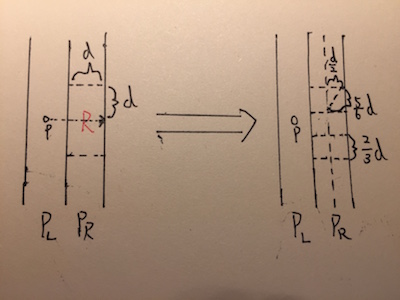 d
d
P
R
P_L P_R
d/2
5/6 d
P
2/3 d
P_L P_R